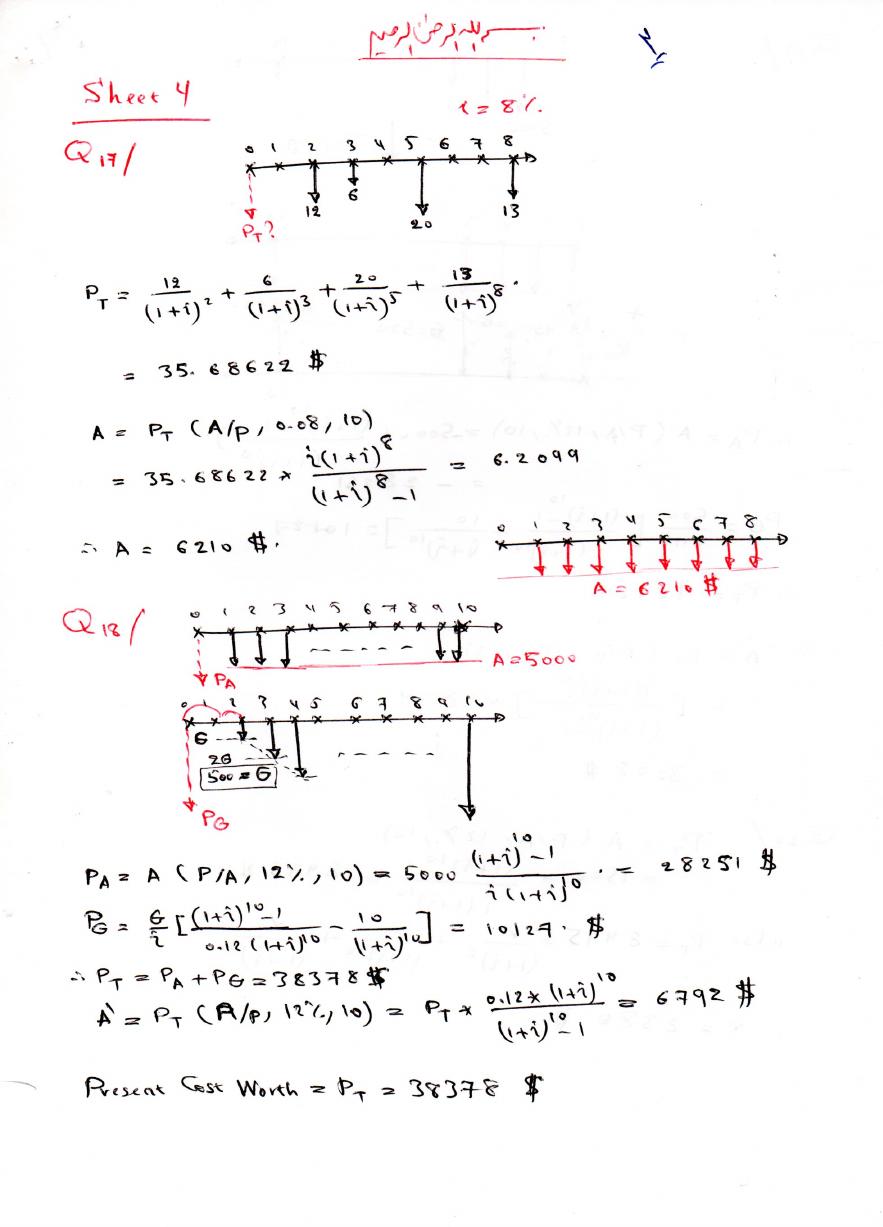 بسم الله الرحمن الرحيم
Sheet 4
i = 8%.
Q17/
0 1 2 3 4 5 6 7 8
12 6 20 13
PT?
PT = 12/(1+i)^2 + 6/(1+i)^3 + 20/(1+i)^5 + 13/(1+i)^8 .
= 35.68622 $
A = PT (A/P, 0.08, 10)
= 35.68622 * i(1+i)^8/((1+i)^8 -1) = 6.2099
∴ A = 6210 $.
0 1 2 3 4 5 6 7 8
A = 6210 $
Q18/
0 1 2 3 4 5 6 7 8 9 10
A = 5000
PA
0 1 2 3 4 5 6 7 8 9 10
G
2G
500 = G
PG
PA = A (P/A, 12%, 10) = 5000 ((1+i)^10 -1)/(i(1+i)^10) . = 28251 $
PG = G/i [((1+i)^10 -1)/(0.12(1+i)^10) - 10/(1+i)^10] = 10127. $
∴ PT = PA + PG = 38378 $
A` = PT (A/P, 12%, 10) = PT * (0.12 * (1+i)^10)/((1+i)^10 -1) = 6792 $
Present Cost Worth = PT = 38378 $